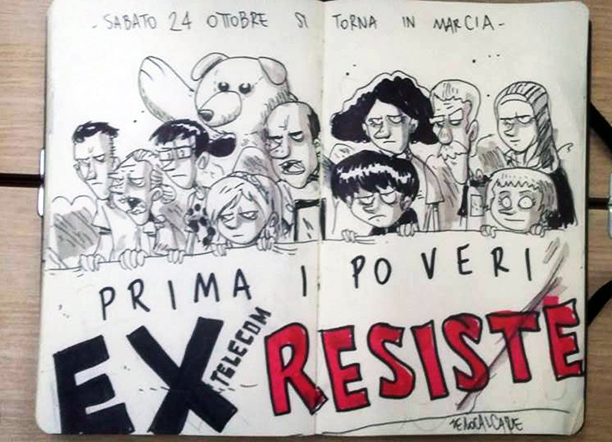 - SABATO 24 OTTOBRE SI TORNA IN MARCIA -
PRIMA I POVERI
EX TELECOM RESISTE
ZEROCALCARE